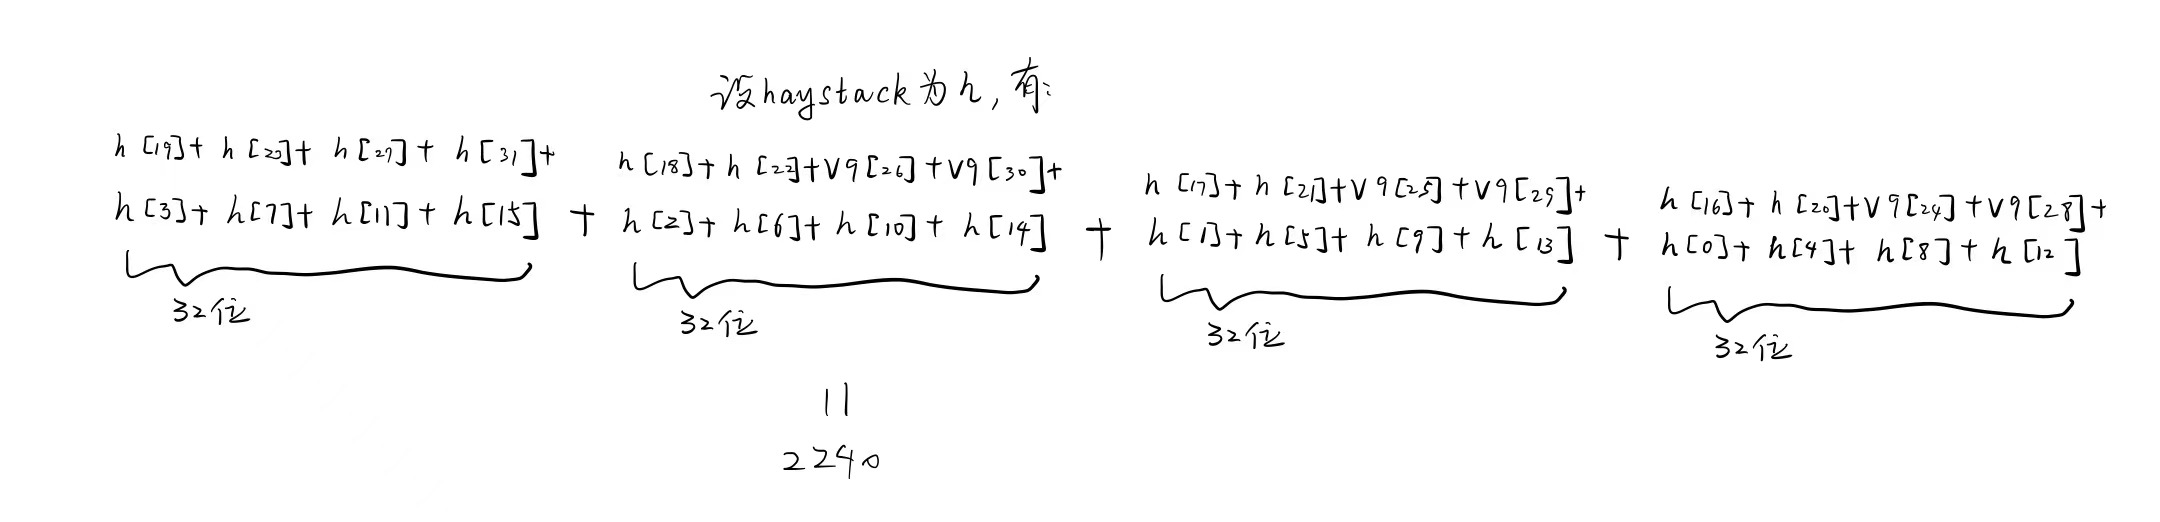 设haystack为h,有:
h[19]+ h[23]+ h[27]+ h[31]+
h[3]+ h[7]+ h[11]+ h[15] +
32位
h[18]+ h[22]+v9[26]+v9[30]+
h[2]+ h[6]+ h[10]+ h[14] +
32位
h[17]+ h[21]+v9[25]+v9[29]+
h[1]+ h[5]+ h[9]+ h[13] +
32位
h[16]+ h[20]+v9[24]+v9[28]+
h[0]+ h[4]+ h[8]+ h[12]
32位
||
2240